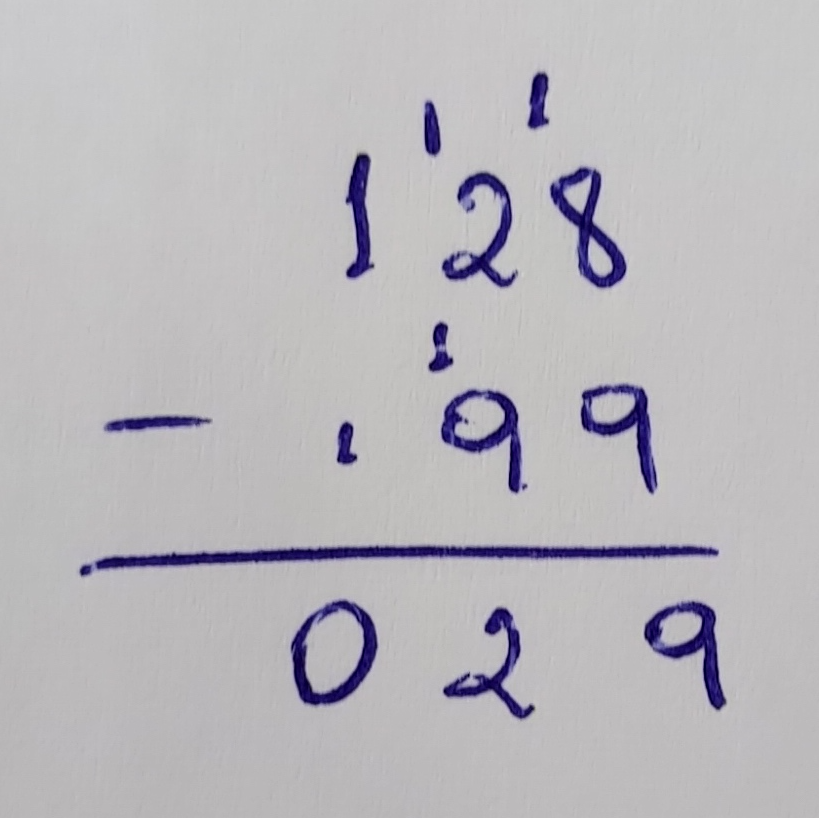 1 1
1 2 8
1
- 1 9 9
0 2 9